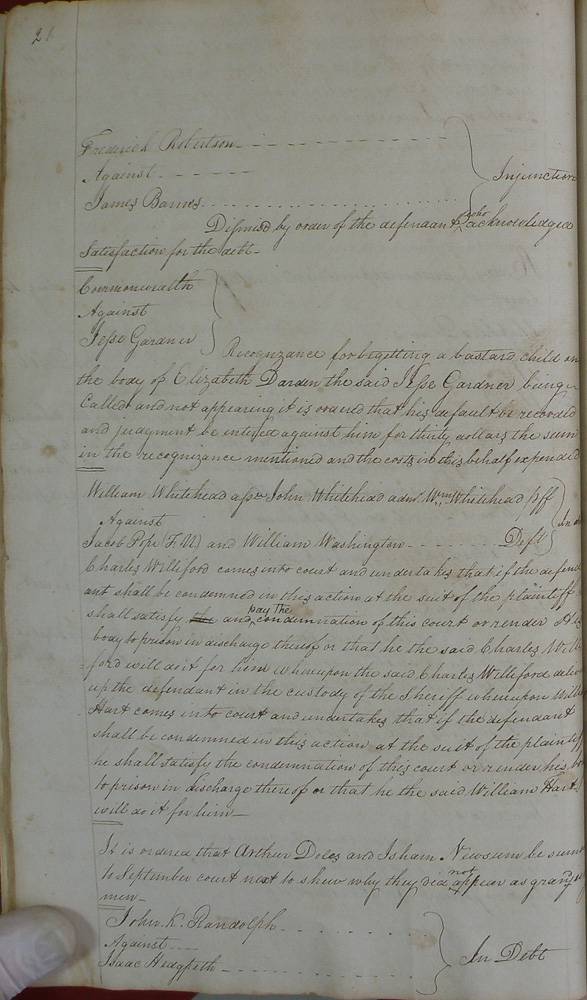 Frederick Robertson
Against
James Barnes
Injunction
Dismisd by order of the defendant who acknowledged
Satisfaction for the debt
Commonwealth
Against
Jesse Gardner
Recognizance for begetting a bastard child on
the body of Elizabeth Darden the said Jesse Gardner being
Called and not appearing it is ordered that his default be recorded
and judgment be entered against him for thirty dollars the sum
in the recognizance mentioned and the costs in this behalf expended
William Whitehead asse John Whitehead admr. Wm Whitehead plff
Against
Jacob Pope (F.N) and William Washington Defts
Charles Williford comes into court and undertakes that if the defend
ant shall be condemned in this action at the suit of the plaintiff
shall satisfy the and pay the condemnation of this court or render His
body to prison in discharge thereof or that he the said Charles Willi
ford will do it for him whereupon the said Charles Williford deliv
up the defendant in the custody of the Sheriff whereupon Willi
Hart comes into court and undertakes that if the defendant
shall be condemned in this action at the suit of the plaintiff
he shall satisfy the condemnation of this court or render his bo
to prison in discharge thereof or that he the said William Hart
will do it for him
It is ordered that Arthur Doles and Isham Newsum be sum
to September court next to shew why they did not appear as grand
men
John K. Randolph
Against
Isaac Hedgpeth
In Debt